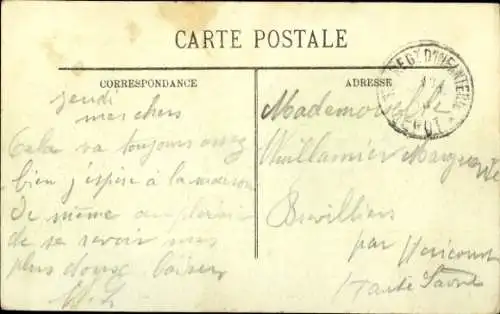 CARTE POSTALE
CORRESPONDANCE
jeudi
mes chers
Cela va toujours assez
bien j'espère à la maison
de même au plaisir
de se revoir mes
plus doux baisers
ADRESSE
Mademoiselle
Vuillamier Marguerite
Brevilliers
par Héricourt
Haute Saône
D'INFANTERIE
DEPOT